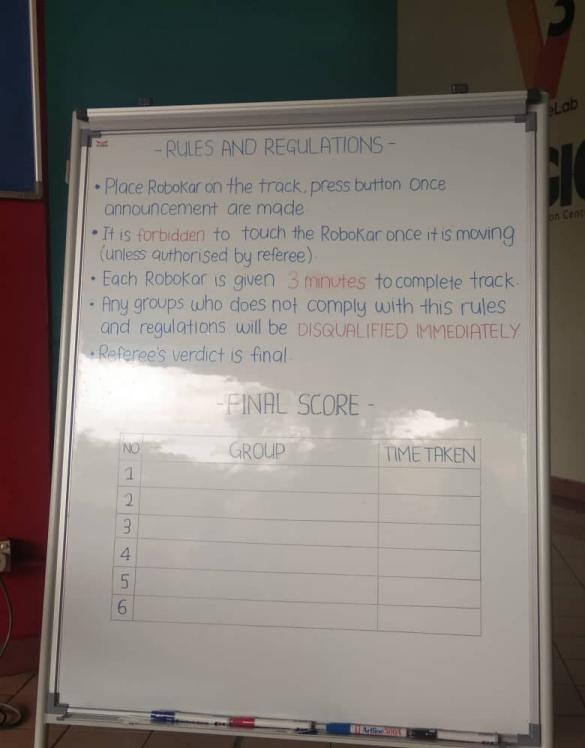 -RULES AND REGULATIONS-
• Place RoboKar on the track, press button once
announcement are made
• It is forbidden to touch the RoboKar once it is moving
(unless authorised by referee).
• Each RoboKar is given 3 minutes to complete track.
• Any groups who does not comply with this rules
and regulations will be DISQUALIFIED IMMEDIATELY
• Referee's verdict is final.
-FINAL SCORE-
NO GROUP TIME TAKEN
1
2
3
4
5
6
Artline 500A
3
eLab
GIC
on Cent